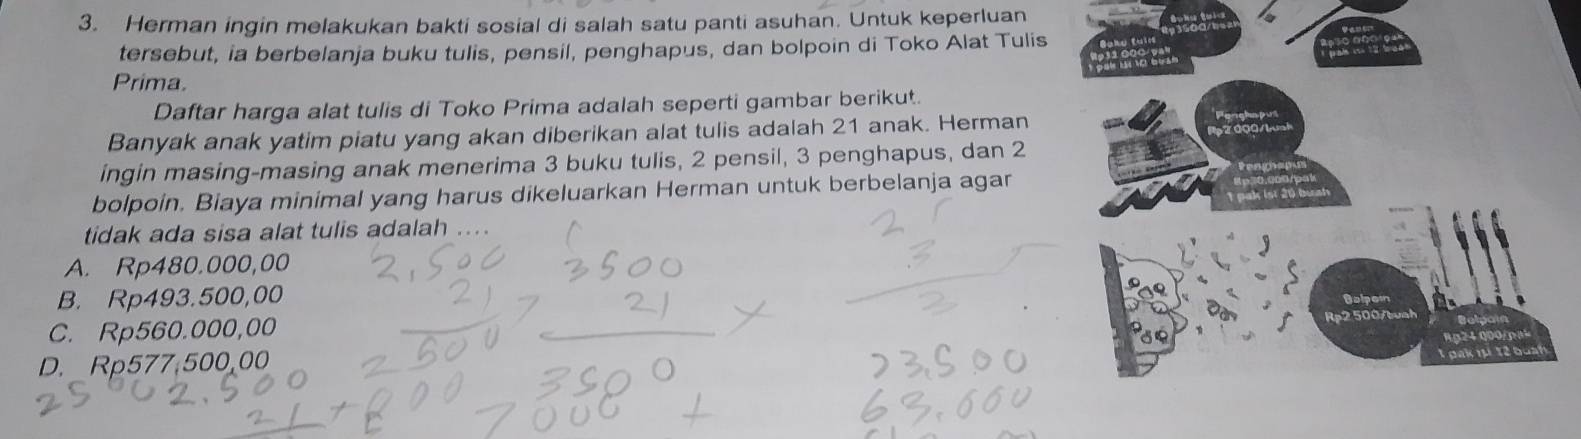 3. Herman ingin melakukan bakti sosial di salah satu panti asuhan. Untuk keperluan
tersebut, ia berbelanja buku tulis, pensil, penghapus, dan bolpoin di Toko Alat Tulis
Prima.
Daftar harga alat tulis di Toko Prima adalah seperti gambar berikut.
Banyak anak yatim piatu yang akan diberikan alat tulis adalah 21 anak. Herman
ingin masing-masing anak menerima 3 buku tulis, 2 pensil, 3 penghapus, dan 2
bolpoin. Biaya minimal yang harus dikeluarkan Herman untuk berbelanja agar
tidak ada sisa alat tulis adalah ....
A. Rp480.000,00
B. Rp493.500,00
C. Rp560.000,00
D. Rp577.500,00
Buku tulis
Rp3500/buah
Buku tulis
Rp32.000/pak
1 pak isi 10 buah
1 pak isi 12 buah
Penghapus
Rp2.000/buah
Penghapus
Rp30.000/pak
1 pak isi 20 buah
Bolpoin
Rp2.500/buah
Bolpoin
Rp24.000/pak
1 pak isi 12 buah
2,500
21
3500
21
3500
23,500
63.000